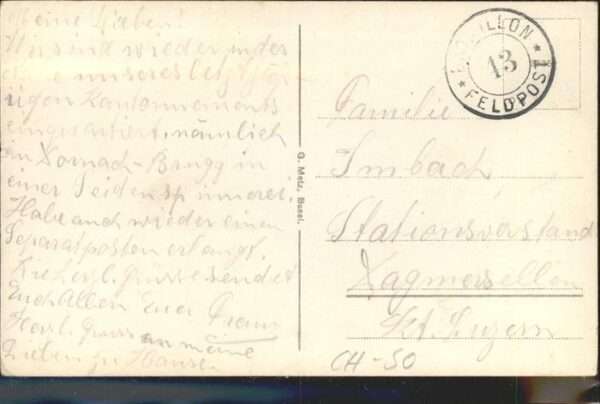 Meine Lieben!
Wir sind wieder in der
unseres letztjäh-
rigen Kantonnements
einquartiert, nämlich
in Dornach-Brugg in
einer Seidenspinnerei.
Habe auch wieder einen
Separatposten erlangt.
herzl. Grüsse sendet
Euch Allen Euer Franz
Herzl. Gruss an meine
Lieben zu Hause.
G. Metz, Basel.
13
FELDPOST
Familie
Imbach
Stationsvorstand
Dagmersellen
Kt. Luzern
CH-SO